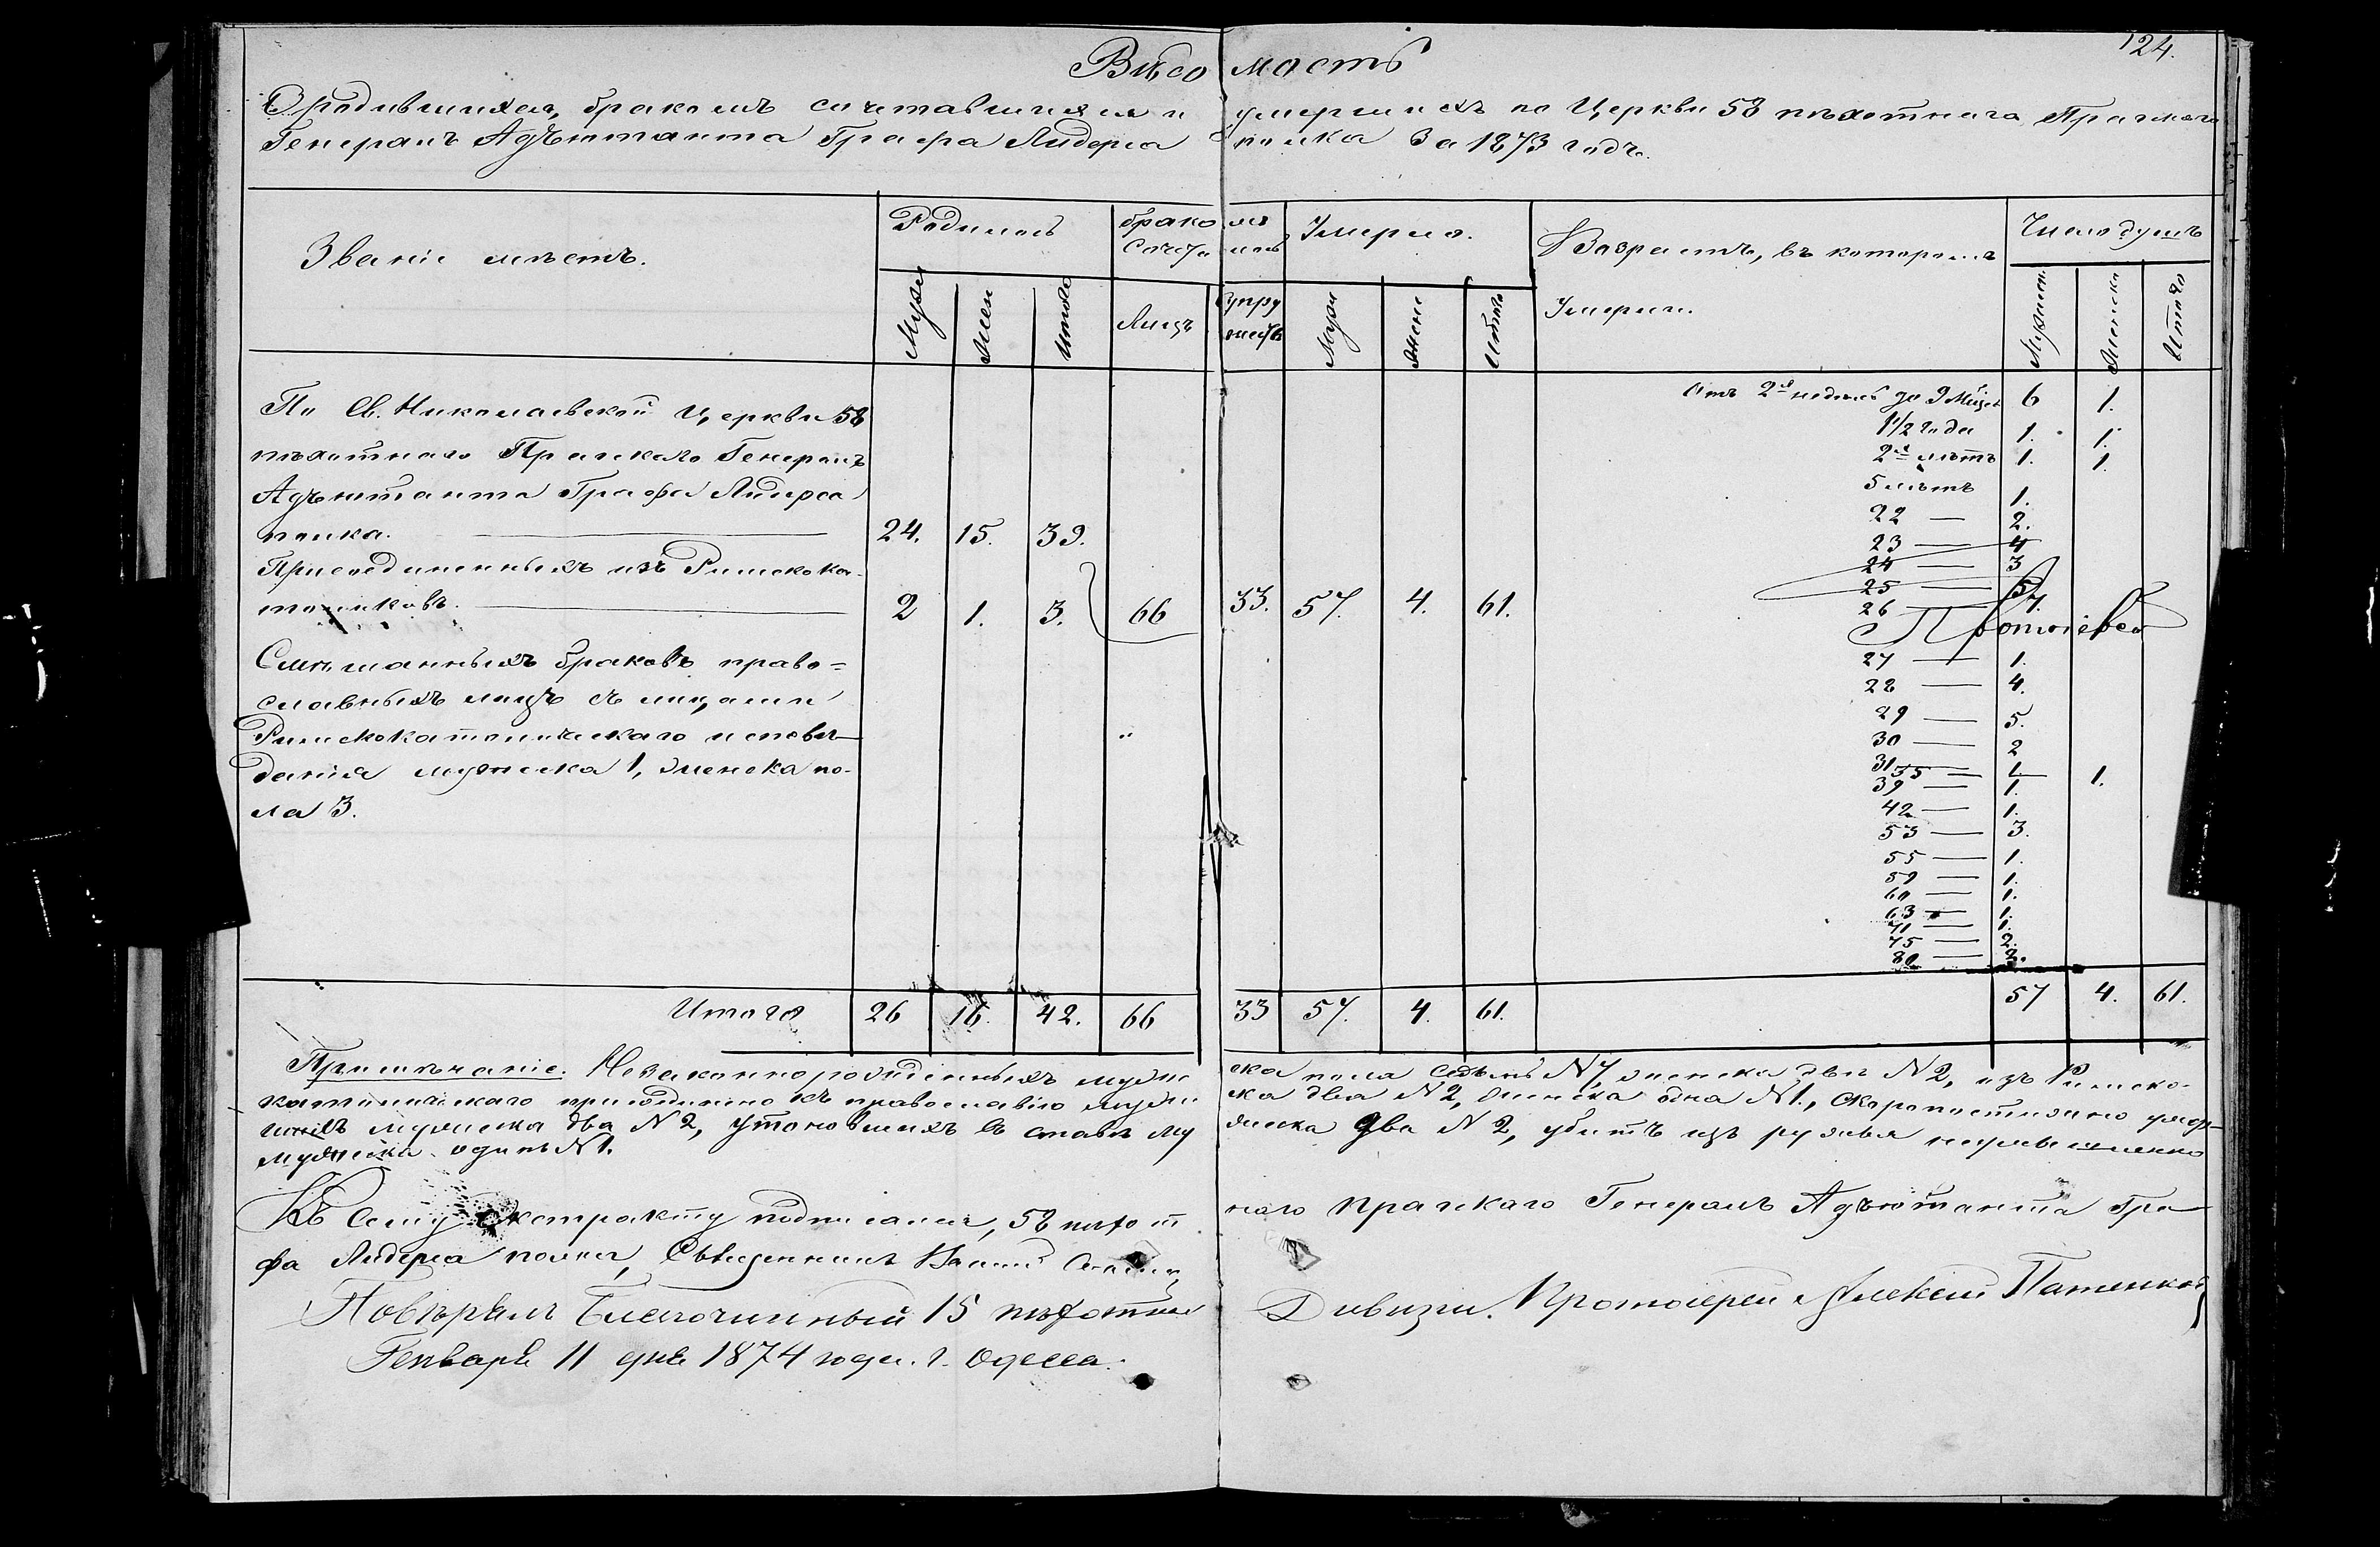 124.
Вѣдомость
О родившихся, бракомъ сочетавшихся и умершихъ по Церкви 58 пѣхотнаго Прагскаго
Генералъ Адъютанта Графа Лидерса полка За 1873 годъ.
Званіе мѣстъ.
Родилось
бракомъ
Сочеталось
Умерло.
Возрастъ, въ которомъ
Умерли.
Число душъ
Муж
Жен
Итого
Лицъ
Супру
жествъ
Муж
Жен
Итого
Мужеск
Женска
Итого
По Св. Николаевской Церкви 58
пѣхотнаго Прагскаго Генералъ
Адъютанта Графа Лидерса
полка. 24. 15. 39.
Присоединенныхъ изъ Римскока-
толиковъ. 2 1. 3. 66 33. 57. 4. 61.
Смѣшанныхъ браковъ право=
славныхъ лицъ съ лицами
Римскокатолическаго исповѣ-
данія мужеска 1, женска по-
ла 3.
Отъ 2х недѣль до 9 Мѣсц 6 1.
1 1/2 года 1. 1.
2х лѣтъ 1. 1.
5 лѣтъ 1.
22 — 2.
23 — 4
24 — 3
25 — 5
26 — 7.
Протоіерей
27 — 1.
28 — 4.
29 — 5.
30 — 2
31
35 — 1. 1.
39 — 1.
42 — 1.
53 — 3.
55 — 1.
59 — 1.
60 — 1.
63 — 1.
71 — 1.
75 — 2.
80 — 2.
Итого 26 16. 42. 66 33 57. 4. 61. 57 4. 61.
Примѣчаніе. Незаконнорожденныхъ мужеска пола Седьмь №7, женска двѣ №2, изъ Римско-
католическаго присоединено къ православію мужеска два №2, женска одна №1., Скоропостижно умер-
шихъ мужеска два №2, утоновшихъ въ ставѣ мужеска два №2, убитъ изъ ружья неумышленно
мужеска одинъ №1.
Къ Сему экстракту подписался, 58 пѣхотнаго Прагскаго Генералъ Адъютанта Гра-
фа Лидерса полка, Священникъ
Повѣрялъ Благочинный 15 пѣхотной Дивизіи. Протоіерей Алексій
Генваря 11 дня 1874 года. г. Одесса.